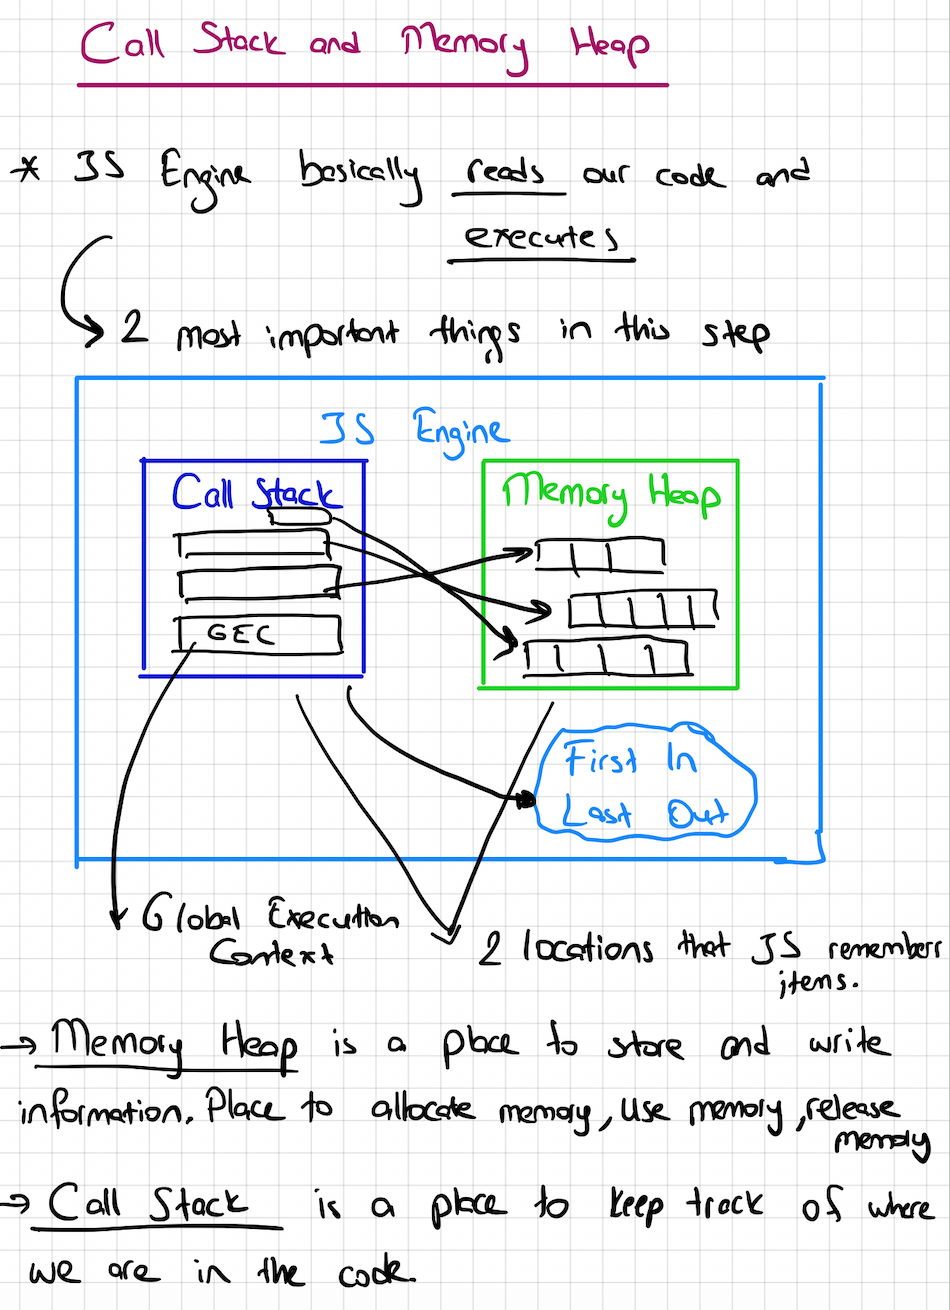 Call Stack and Memory Heap
* JS Engine basically reads our code and
executes
2 most important things in this step
JS Engine
Call Stack
Memory Heap
GEC
First In
Last Out
Global Execution
Context
2 locations that JS remembers
items.
→ Memory Heap is a place to store and write
information. Place to allocate memory, use memory, release
memory
→ Call Stack is a place to keep track of where
we are in the code.